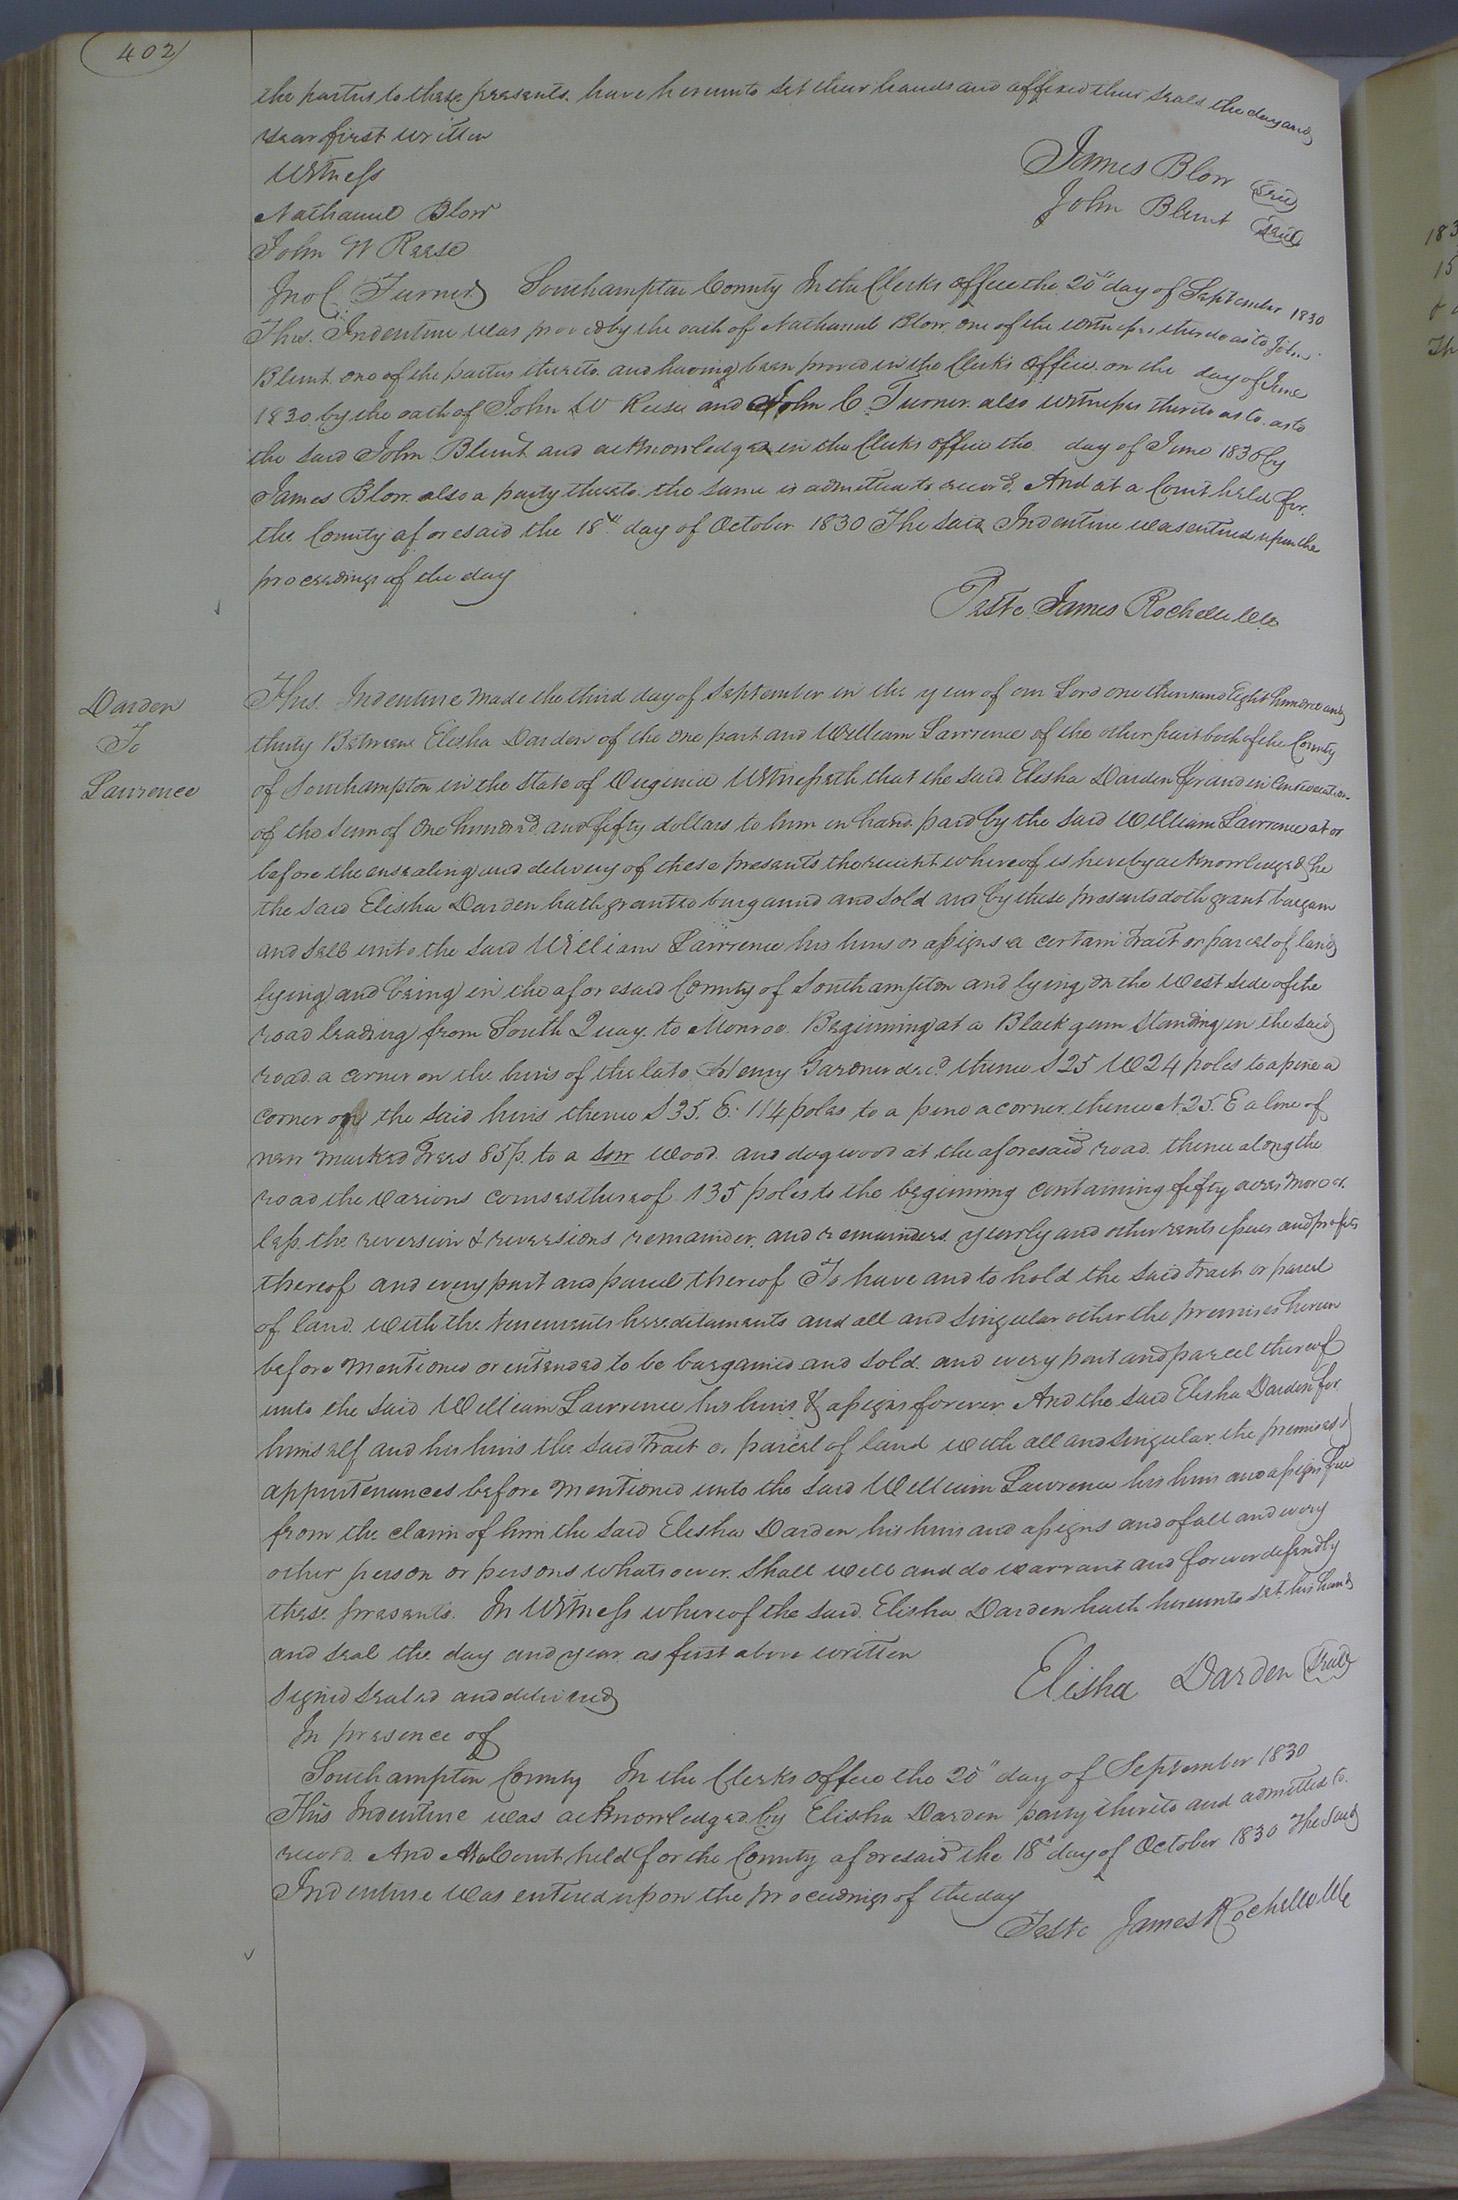 402
the parties to these presents have hereunto set their hands and affixed their seals the day and
year first written
Witness
James Blow Seal
Nathaniel Blow
John Blunt Seal
John W Reese
Jno C. Turner Southampton County In the Clerks office the 20" day of September 1830
This Indenture was proved by the oath of Nathaniel Blow one of the witnesses thereto as to John
Blunt one of the parties thereto and having been proved in the Clerks Office on the day of June
1830 by the oath of John W Reese and John C. Turner also witnesses thereto as to as to
the said John Blunt and acknowledged in the Clerks office the day of June 1830 by
James Blow also a party thereto the same is admitted to record. And at a Court held for
the County aforesaid the 18" day of October 1830 The said Indenture was entered upon the
proceedings of the day
Teste James Rochelle Clk
Darden
To
Lawrence
This Indenture made the third day of September in the year of our Lord one thousand Eight hundred and
thirty Between Elisha Darden of the one part and William Lawrence of the other part both of the County
of Southampton in the State of Virginia Witnesseth that the said Elisha Darden for and in Consideration
of the sum of One hundred and fifty dollars to him in hand paid by the said William Lawrence at or
before the ensealing and delivery of these presents the receipt whereof is hereby acknowledged he
the said Elisha Darden hath granted bargained and sold and by these presents doth grant bargain
and sell unto the said William Lawrence his heirs or assigns a certain tract or parcel of land
lying and being in the aforesaid County of Southampton and lying on the West side of the
road leading from South Quay to Monroe. Beginning at a Black gum standing in the said
road a corner on the heirs of the late Henry Gardner decd. thence S 25 W 24 poles to a pine a
corner on the said heirs thence S 35. E. 114 poles to a pine a corner thence N. 25. E a line of
new marked trees 85 p. to a sow wood and dogwood at the aforesaid road thence along the
road the various courses thereof 135 poles to the beginning containing fifty acres more or
less the reversion & reversions remainder and remainders yearly and other rents issues and profits
thereof and every part and parcel thereof To have and to hold the said tract or parcel
of land with the tenements hereditaments and all and singular other the premises herein
before mentioned or intended to be bargained and sold and every part and parcel thereof
unto the said William Lawrence his heirs & assigns forever And the said Elisha Darden for
himself and his heirs the said tract or parcel of land with all and singular the premises &
appurtenances before mentioned unto the said William Lawrence his heirs and assigns free
from the claim of him the said Elisha Darden his heirs and assigns and of all and every
other person or persons whatsoever shall will and do warrant and forever defend by
these presents. In Witness whereof the said Elisha Darden hath hereunto set his hand
and seal the day and year as first above written
Elisha Darden Seal
Signed sealed and delivered
In presence of
Southampton County In the Clerks office the 20" day of September 1830
This Indenture was acknowledged by Elisha Darden party thereto and admitted to
record. And At a Court held for the County aforesaid the 18" day of October 1830 The said
Indenture was entered upon the proceedings of the day
Teste James Rochelle Clk
183
15